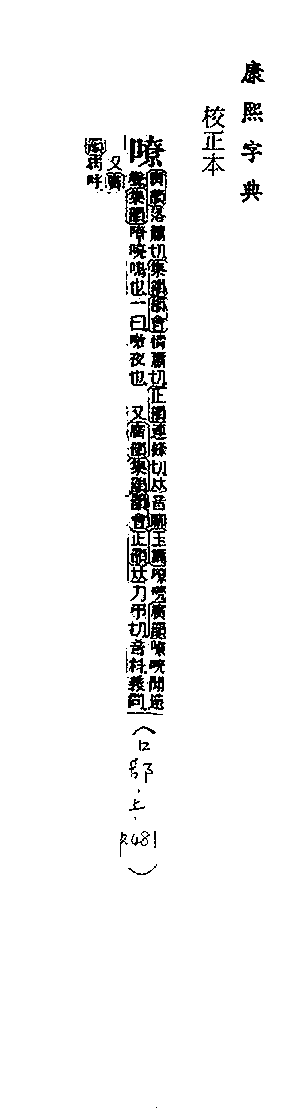 康熙字典
校正本
嘹
廣韻落蕭切集韻韻會憐蕭切正韻連條切𠀤音聊玉篇嘹喨廣韻嘹喨聞遠
聲集韻嘹曉鳴也一曰嘹夜也 又廣韻集韻韻會正韻𠀤力弔切音料義同
又
病呼
(口部.上.P.481)